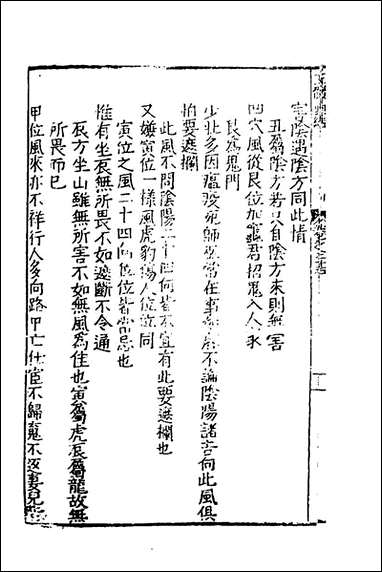 害陰遇陰方同此情
丑為陰方若只自陰方來則無害
四穴風從艮位加竈君招鬼入人家
艮為鬼門
少壯多因瘟疫死師巫常在事不論陰陽諸吉向此風俱
怕要遮攔
此風不問陰陽二十四向皆不宜有此要遮攔也
又嫌寅位一樣風虎豹傷人位位同
寅位之風二十四向位位皆當忌也
惟有坐辰無所畏不如遮斷不令通
辰方坐山雖無所害不如無風為佳也寅屬虎辰屬龍故無
所畏而已
甲位風來亦不祥行人多向路中亡仕宦不歸冤不返妻兒